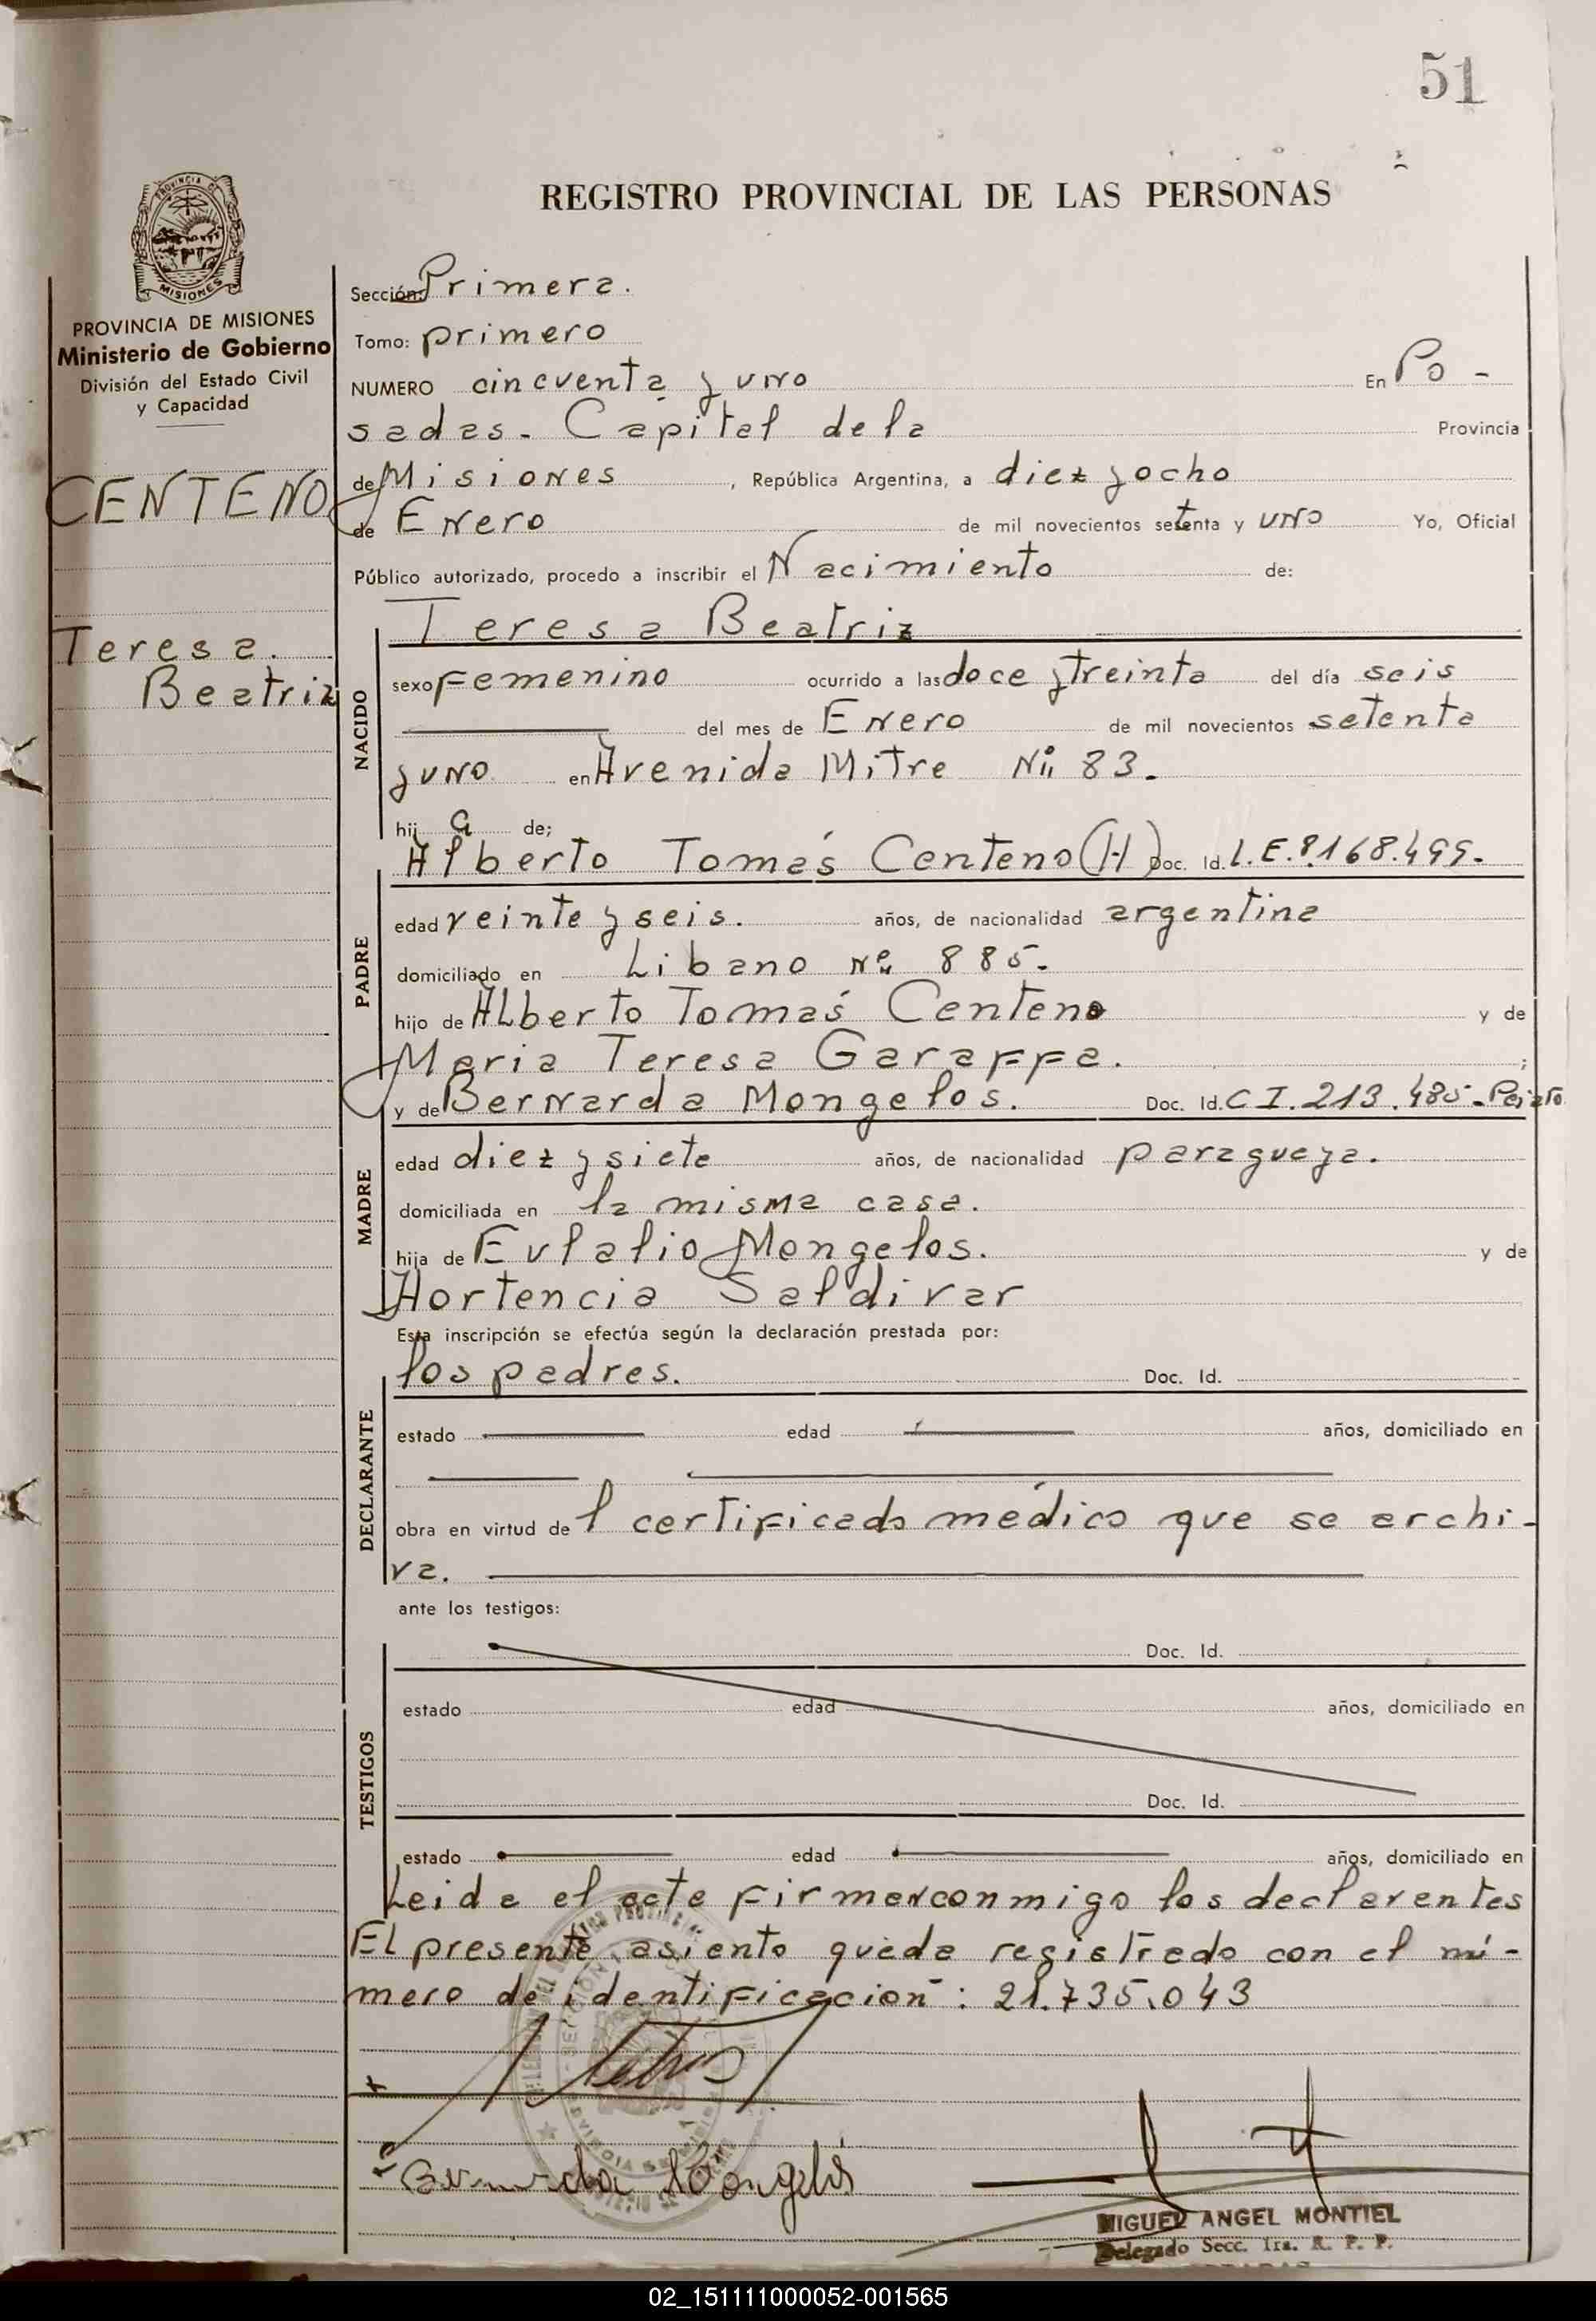 51
REGISTRO PROVINCIAL DE LAS PERSONAS
PROVINCIA DE MISIONES
Ministerio de Gobierno
División del Estado Civil
y Capacidad
CENTENO
Teresa.
Beatriz
Sección: Primera.
Tomo: primero
NUMERO cincuenta y uno En Po-
sadas. Capital de la Provincia
de Misiones, República Argentina, a diez y ocho
de Enero de mil novecientos setenta y uno Yo, Oficial
Público autorizado, procedo a inscribir el Nacimiento de:
NACIDO
Teresa Beatriz
sexo Femenino ocurrido a las doce y treinta del día seis
del mes de Enero de mil novecientos setenta
y uno en Avenida Mitre Nº 83.
hij a de;
PADRE
Alberto Tomás Centeno (H) Doc. Id. L.E. 8.168.499.
edad veinte y seis. años, de nacionalidad argentina
domiciliado en Libano Nº 885.
hijo de Alberto Tomás Centeno y de
Maria Teresa Garaffa. ;
MADRE
y de Bernarda Mongelos. Doc. Id. C I. 213.485-
edad diez y siete años, de nacionalidad paraguaya.
domiciliada en la misma casa.
hija de Eulalio Mongelos. y de
Hortencia Saldivar
Esta inscripción se efectúa según la declaración prestada por:
DECLARANTE
los padres. Doc. Id.
estado edad años, domiciliado en
obra en virtud de l certificado médico que se archi-
va.
ante los testigos:
TESTIGOS
Doc. Id.
estado edad años, domiciliado en
Doc. Id.
estado edad años, domiciliado en
Leida el acta firman conmigo los declarentes
El presente asiento queda registrado con el nú-
mero de identificación: 21.735.043
Bernarda Mongelós
MIGUEL ANGEL MONTIEL
Delegado Secc. 1ra. R. P. P.
02_151111000052-001565